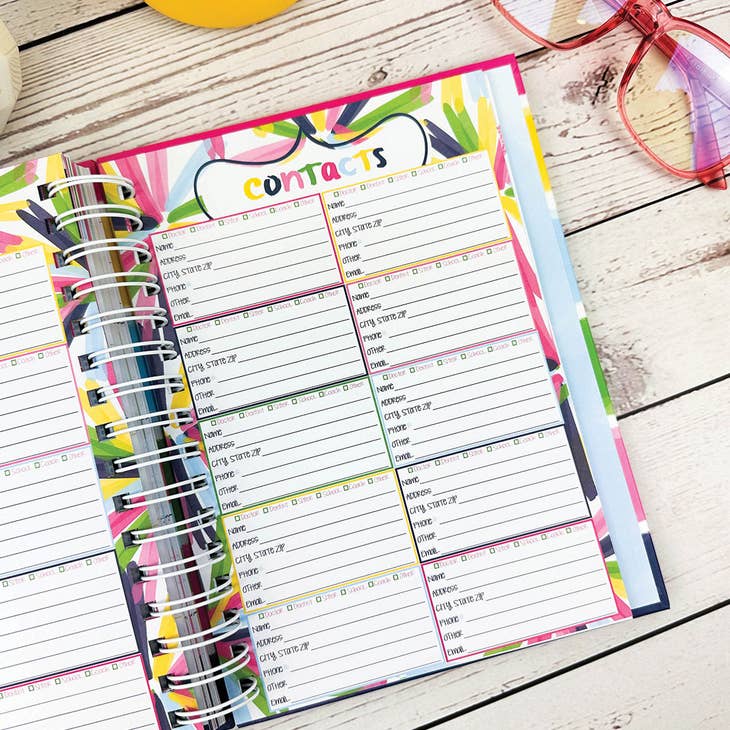 Coach Other
School Coach Other
School Coach Other
Sitter School Coach Other
Sitter School Coach Other
contacts
Doctor Dentist Sitter School Coach Other
Name
Address
City, State Zip
Phone
Other
Email
Doctor Dentist Sitter School Coach Other
Name
Address
City, State Zip
Phone
Other
Email
Doctor Dentist Sitter School Coach Other
Name
Address
City, State Zip
Phone
Other
Email
Doctor Dentist Sitter School Coach Other
Name
Address
City, State Zip
Phone
Other
Email
Doctor Dentist Sitter School Coach Other
Name
Address
City, State Zip
Phone
Other
Email
Doctor Dentist Sitter School Coach Other
Name
Address
City, State Zip
Phone
Other
Email
Doctor Dentist Sitter School Coach Other
Name
Address
City, State Zip
Phone
Other
Email
Doctor Dentist Sitter School Coach Other
Name
Address
City, State Zip
Phone
Other
Email
Doctor Dentist Sitter School Coach Other
Name
Address
City, State Zip
Phone
Other
Email
Doctor Dentist Sitter School Coach Other
Name
Address
City, State Zip
Phone
Other
Email